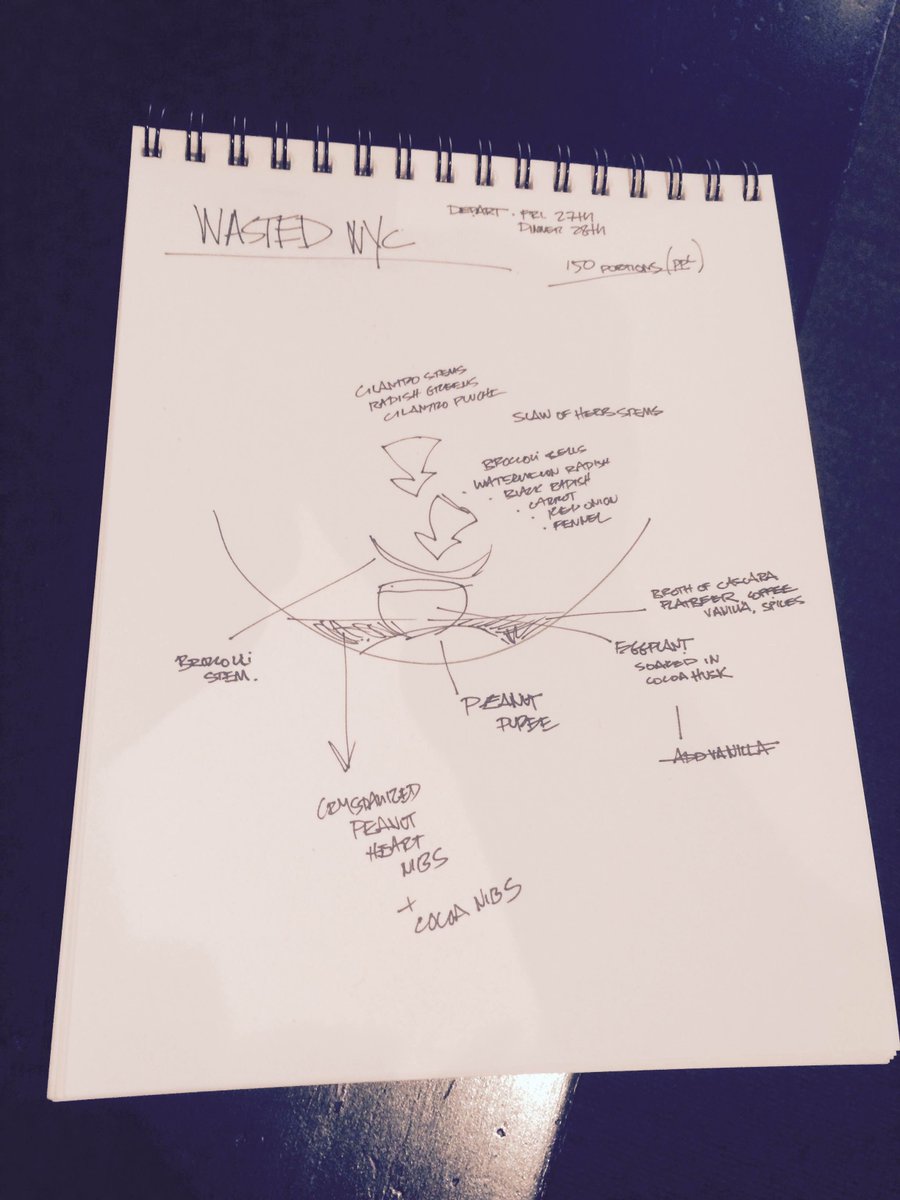 WASTED NYC
DEPART. FRI 27TH
DINNER 28TH
150 PORTIONS (PPL)
CILANTRO STEMS
RADISH GREENS
CILANTRO PLUCHE
SLAW OF HERB STEMS
BROCCOLI
WATERMELON RADISH
· BLACK RADISH
· CARROT
· RED ONION
· FENNEL
BROTH OF CASCARA
COFFEE
VANILLA, SPICES
EGGPLANT
SOAKED IN
COCOA HUSK
ADD VANILLA
BROCCOLI
STEM.
PEANUT
PUREE
CRYSTALIZED
PEANUT
HEART
NIBS
+
COCOA NIBS